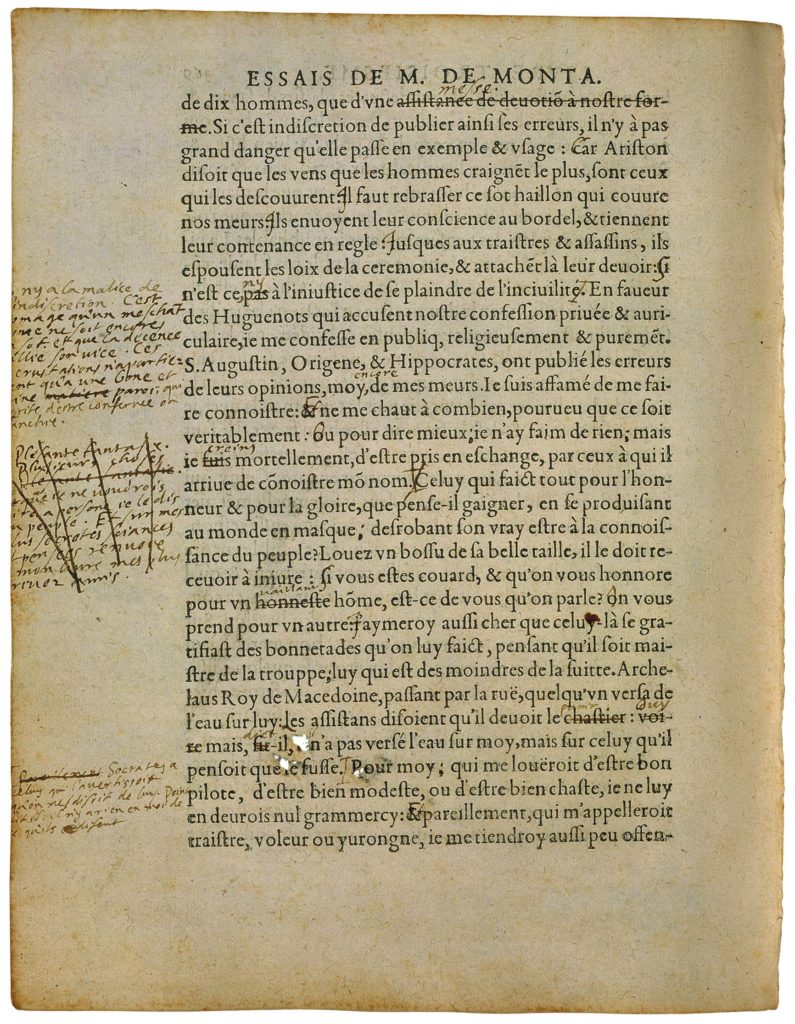 ESSAIS DE M. DE MONTA.
messe
de dix hommes, que d'vne assistance de deuotiõ à nostre for-
me. Si c'est indiscretion de publier ainsi ses erreurs, il n'y à pas
grand danger qu'elle passe en exemple & vsage : Car Ariston
disoit que les vens que les hommes craignẽt le plus, sont ceux
qui les descouurent Il faut rebrasser ce sot haillon qui couure
nos meurs Ils enuoyent leur conscience au bordel, & tiennent
leur contenance en regle Iusques aux traistres & assassins, ils
espousent les loix de la ceremonie, & attachẽt là leur deuoir: si
ny
n'est ce, pas à l'iniustice de se plaindre de l'inciuilité. En faueur
des Huguenots qui accusent nostre confession priuée & auri-
culaire, ie me confesse en publiq, religieusement & puremẽt.
S. Augustin, Origene, & Hippocrates, ont publié les erreurs
encore
de leurs opinions, moy, de mes meurs. Ie suis affamé de me fai-
re connoistre: & ne me chaut à combien, pourueu que ce soit
veritablement : Ou pour dire mieux; ie n'ay faim de rien; mais
creins
ie fuis mortellement, d'estre pris en eschange, par ceux à qui il
arriue de cõnoistre mõ nom. Celuy qui faict tout pour l'hon-
neur & pour la gloire, que pense-il gaigner, en se produisant
au monde en masque, desrobant son vray estre à la connois-
sance du peuple? Louez vn bossu de sa belle taille, il le doit re-
ceuoir à iniure : si vous estes couard, & qu'on vous honnore
vaillant
pour vn honneste hõme, est-ce de vous qu'on parle? On vous
prend pour vn autre: I'aymeroy aussi cher que celuy-là se gra-
tifiast des bonnetades qu'on luy faict, pensant qu'il soit mai-
stre de la trouppe, luy qui est des moindres de la suitte. Arche-
laus Roy de Macedoine, passant par la ruë, quelqu'vn versa de
l'eau sur luy: les assistans disoient qu'il deuoit le chastier : voi-
re mais, fit-il, n'a pas versé l'eau sur moy, mais sur celuy qu'il
pensoit que ie fusse. Pour moy; qui me louëroit d'estre bon
pilote, d'estre bien modeste, ou d'estre bien chaste, ie ne luy
en deurois nul grammercy: & pareillement, qui m'appelleroit
traistre, voleur ou yurongne, ie me tiendroy aussi peu offen-
ny a la malice de
indiscretion. C'est
qu'un meschant
ne soit encores
sot et que la decence
son vice. Ces
incrustations n'apartien
qu'a une bone et
matiere paroi, qui
d'estre conservee
Plesante fantasie.
Plusieurs choses
que ie ne voudrois
a persone ie le dis
peuple. Et sur mes
plus secretes sciances
pensees renvoie
mes plus
amis.
Socrates a
celuy qui l'avertissoit
qu'on mesdisoit de luy. Point
il n'y a rien en moi de
ce qu'ils disent